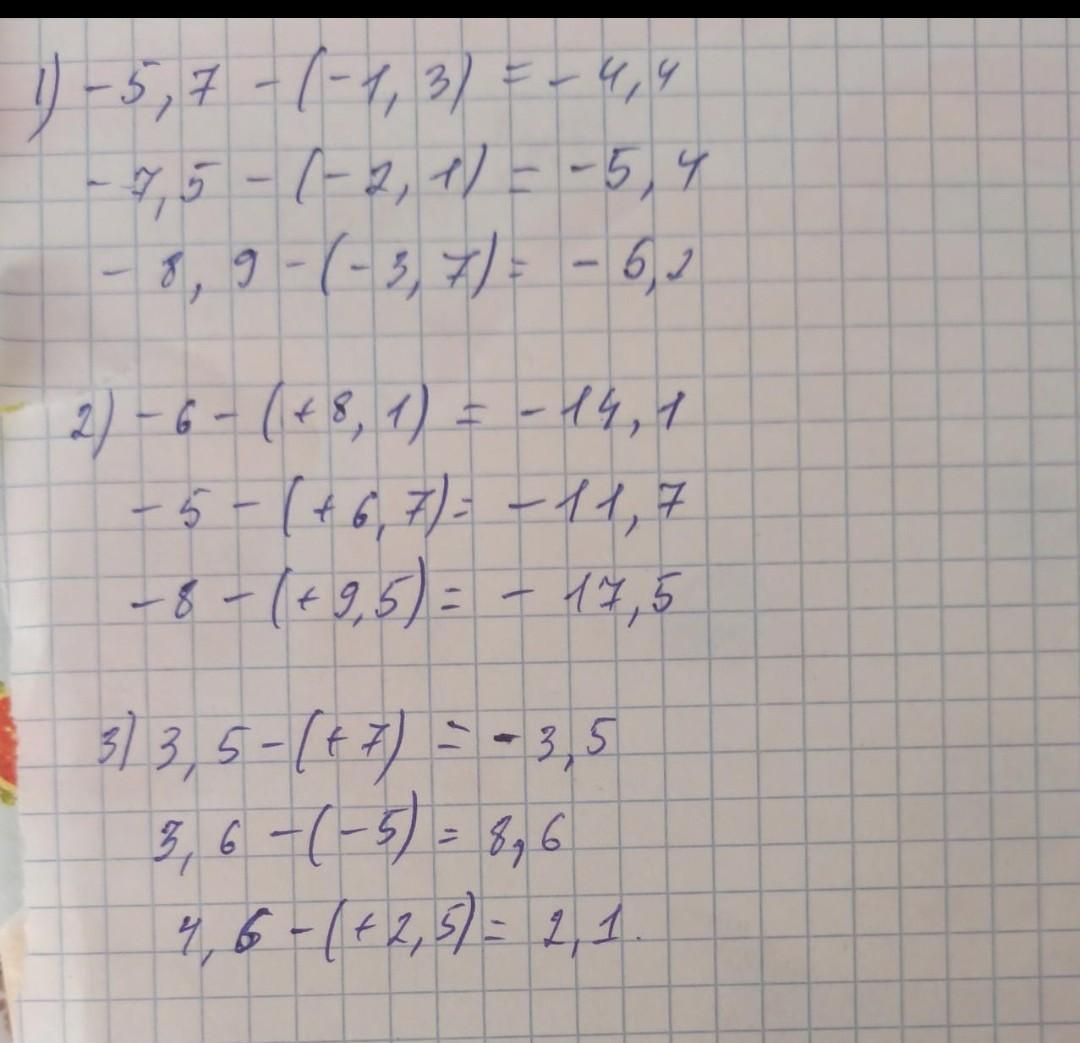 1) -5,7 - (-1,3) = -4,4
-7,5 - (-2,1) = -5,4
-8,9 - (-3,7) = -6,2
2) -6 - (+8,1) = -14,1
-5 - (+6,7) = -11,7
-8 - (+9,5) = -17,5
3) 3,5 - (+7) = -3,5
3,6 - (-5) = 8,6
4,6 - (+2,5) = 2,1.